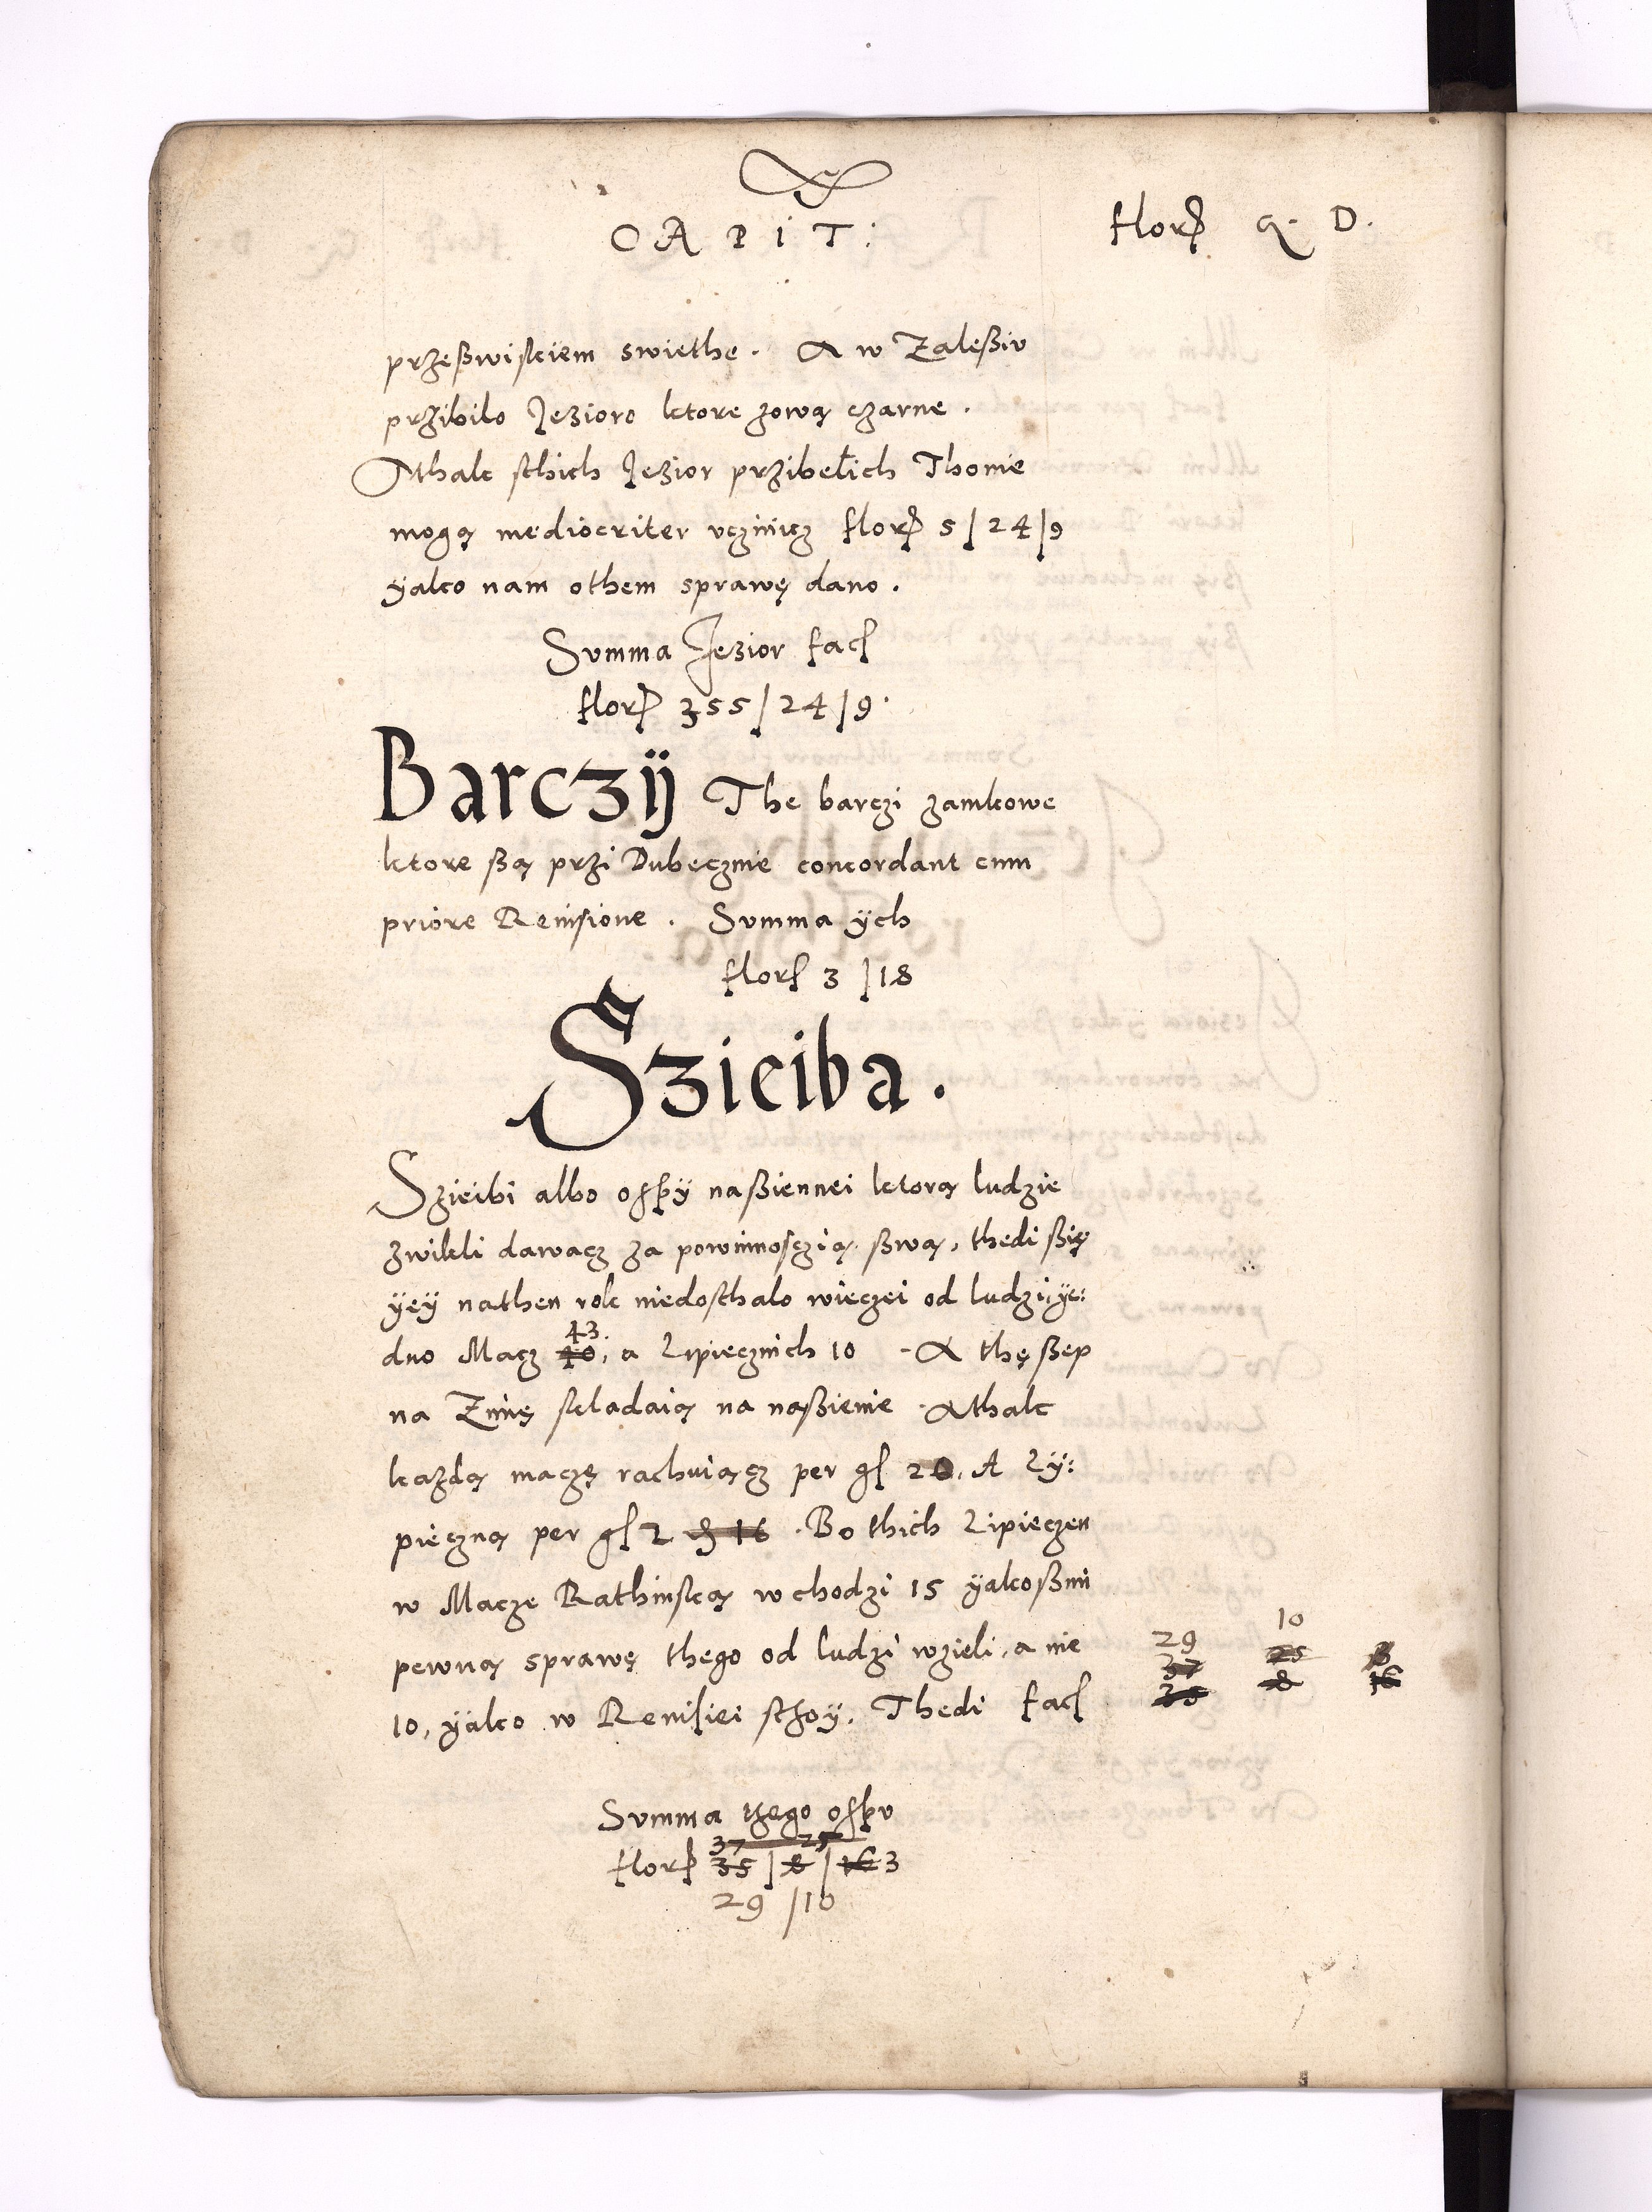 CAPIT: flor. G. D.
przeßwisciem swiethe. A w Zaleßiu
przibilo Jezioro ktore zową czarne.
Athak sthich Jezior przibełich Thonie
mogą mediocriter vczinicz flor. 5/24/9
yako nam othem sprawę dano.
Summa Jezior fac.
flor. 355/24/9.
Barczÿ The barczi zamkowe
ktore ßą przi Dubecznie concordant cum
priore Reuisione. Summa ÿch
flor. 3/18
Szieiba.
Szieibi albo oſpÿ naßiennei ktorą ludzie
zwikli dawacz za powinnosczią ßwą, thedi ßię
ÿeÿ nathen rok niedosthalo wieczei od ludzi, ÿe:
43.
dno Macz 40, a Lipiecznich 10. A thę ßep
na Zimę składaią na naßienie. Athak
każdą maczę rachuiącz per g. 20. A Lÿ:
pieczną per g. 2 d. 16. Bo thich Lipieczen
w Macze Rathinską wchodzi 15 ÿakoßmi
pewną sprawę thego od ludzi wzieli, a nie
10, ÿako w Reuisiei stoÿ. Thedi fac.
29 10
37 25 3
35 8 16
Summa tego oſpu
37 25
flor. 35/8/16 3
29/10